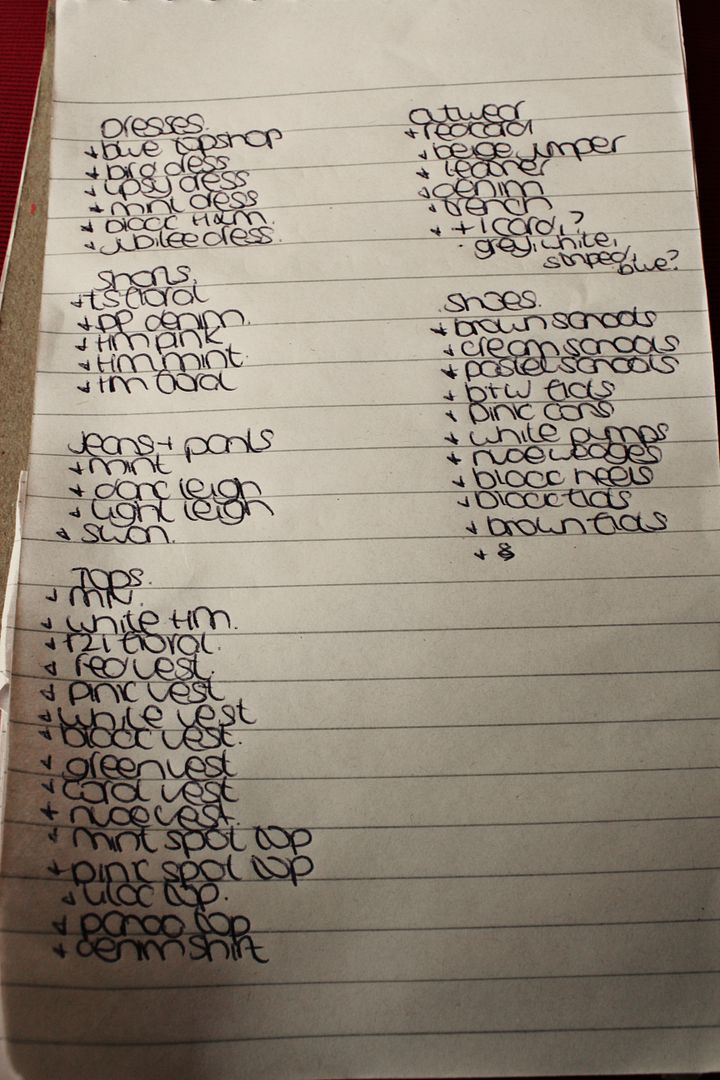 Dresses.
+ blue topshop
+ bird dress
+ lipsy dress
+ mint dress
+ black H&M.
+ jubilee dress.
Shorts.
+ TS floral
+ PP denim.
+ HM pink
+ HM mint.
+ HM floral
Jeans + pants
+ mint
+ dark leigh
+ light leigh
+ swan.
Tops.
+ MN.
+ white HM.
+ F21 floral.
+ red vest.
+ pink vest
+ white vest
+ black vest.
+ green vest
+ coral vest
+ nude vest.
+ mint spot top
+ pink spot top
+ lilac top.
+ panda top
+ denim shirt
outwear
+ red card
+ beige jumper
+ leather
+ denim
+ trench
+ + 1 card, ?
· grey, white,
striped,
blue?
Shoes.
+ brown sandals
+ cream sandals
+ pastel sandals
+ b+w flats
+ pink cons
+ white pumps
+ nude wedges
+ black heels
+ black flats
+ brown flats
+